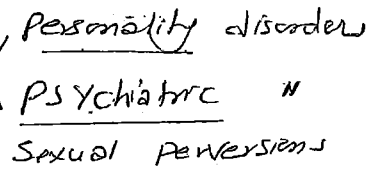 , Personality disorders
. Psychiatric "
Sexual perversions